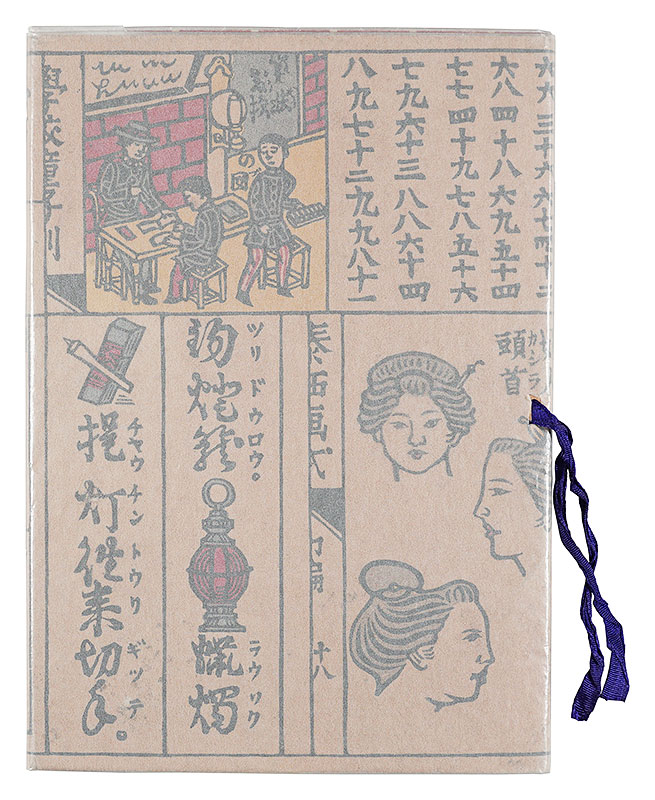 六六三十六六七四十二
六八四十八六九五十四
七七四十九七八五十六
七九六十三八八六十四
八九七十二九九八十一
の図
カシラ
頭首。
十八
ツリドウロウ。
釣燈籠
ラウソク
蝋燭
チヤウチン
提灯
トウリギツテ
徃来切手。